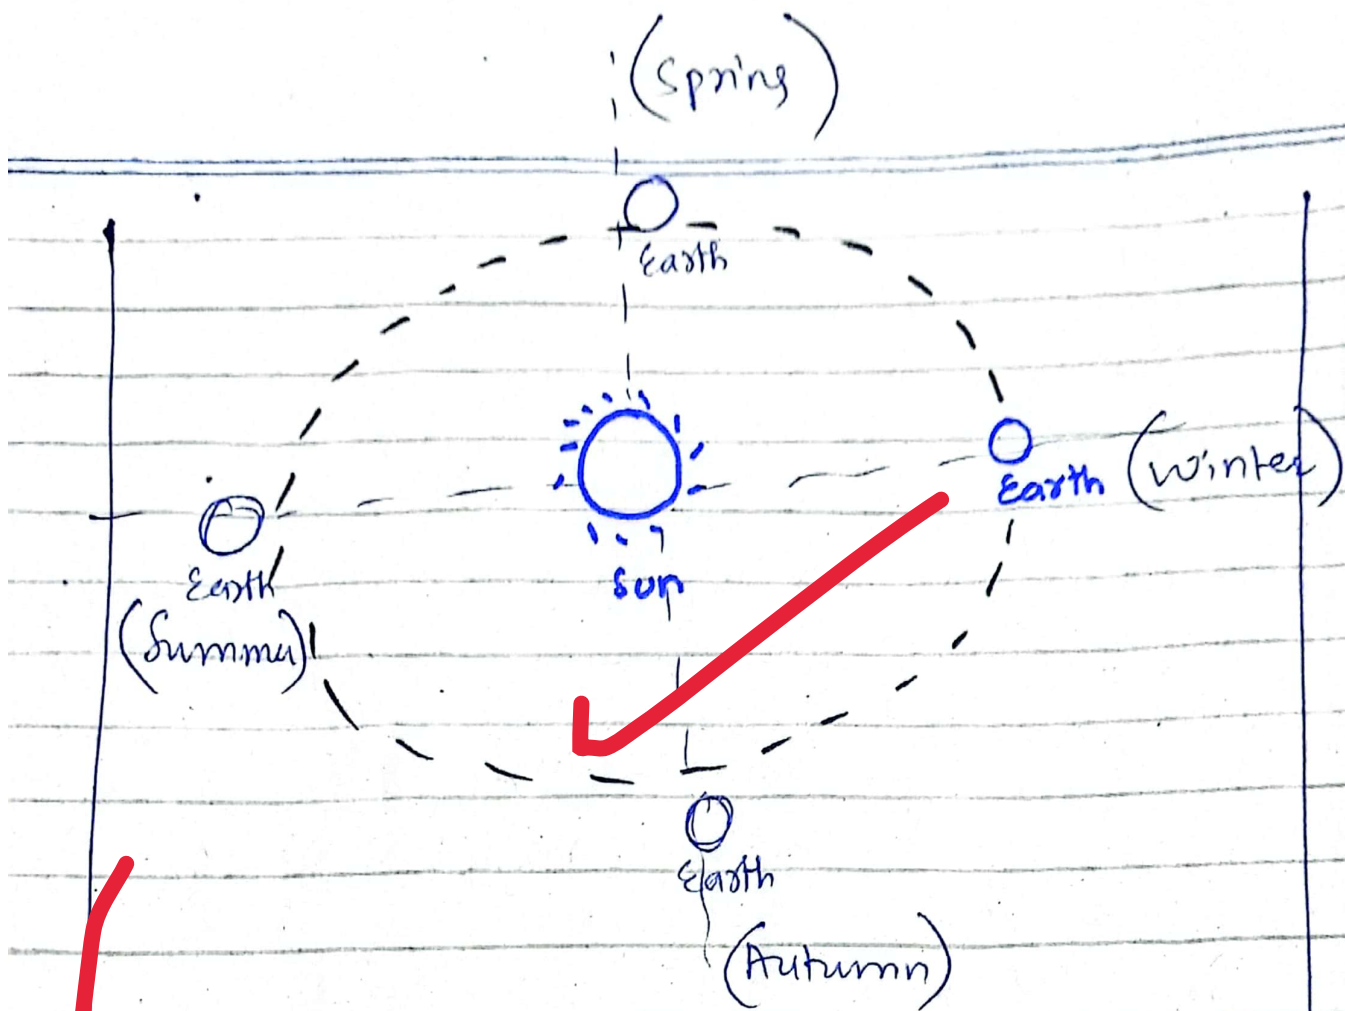 (Spring)
Earth
Earth (Winter)
Sun
Earth
(Summer)
Earth
(Autumn)